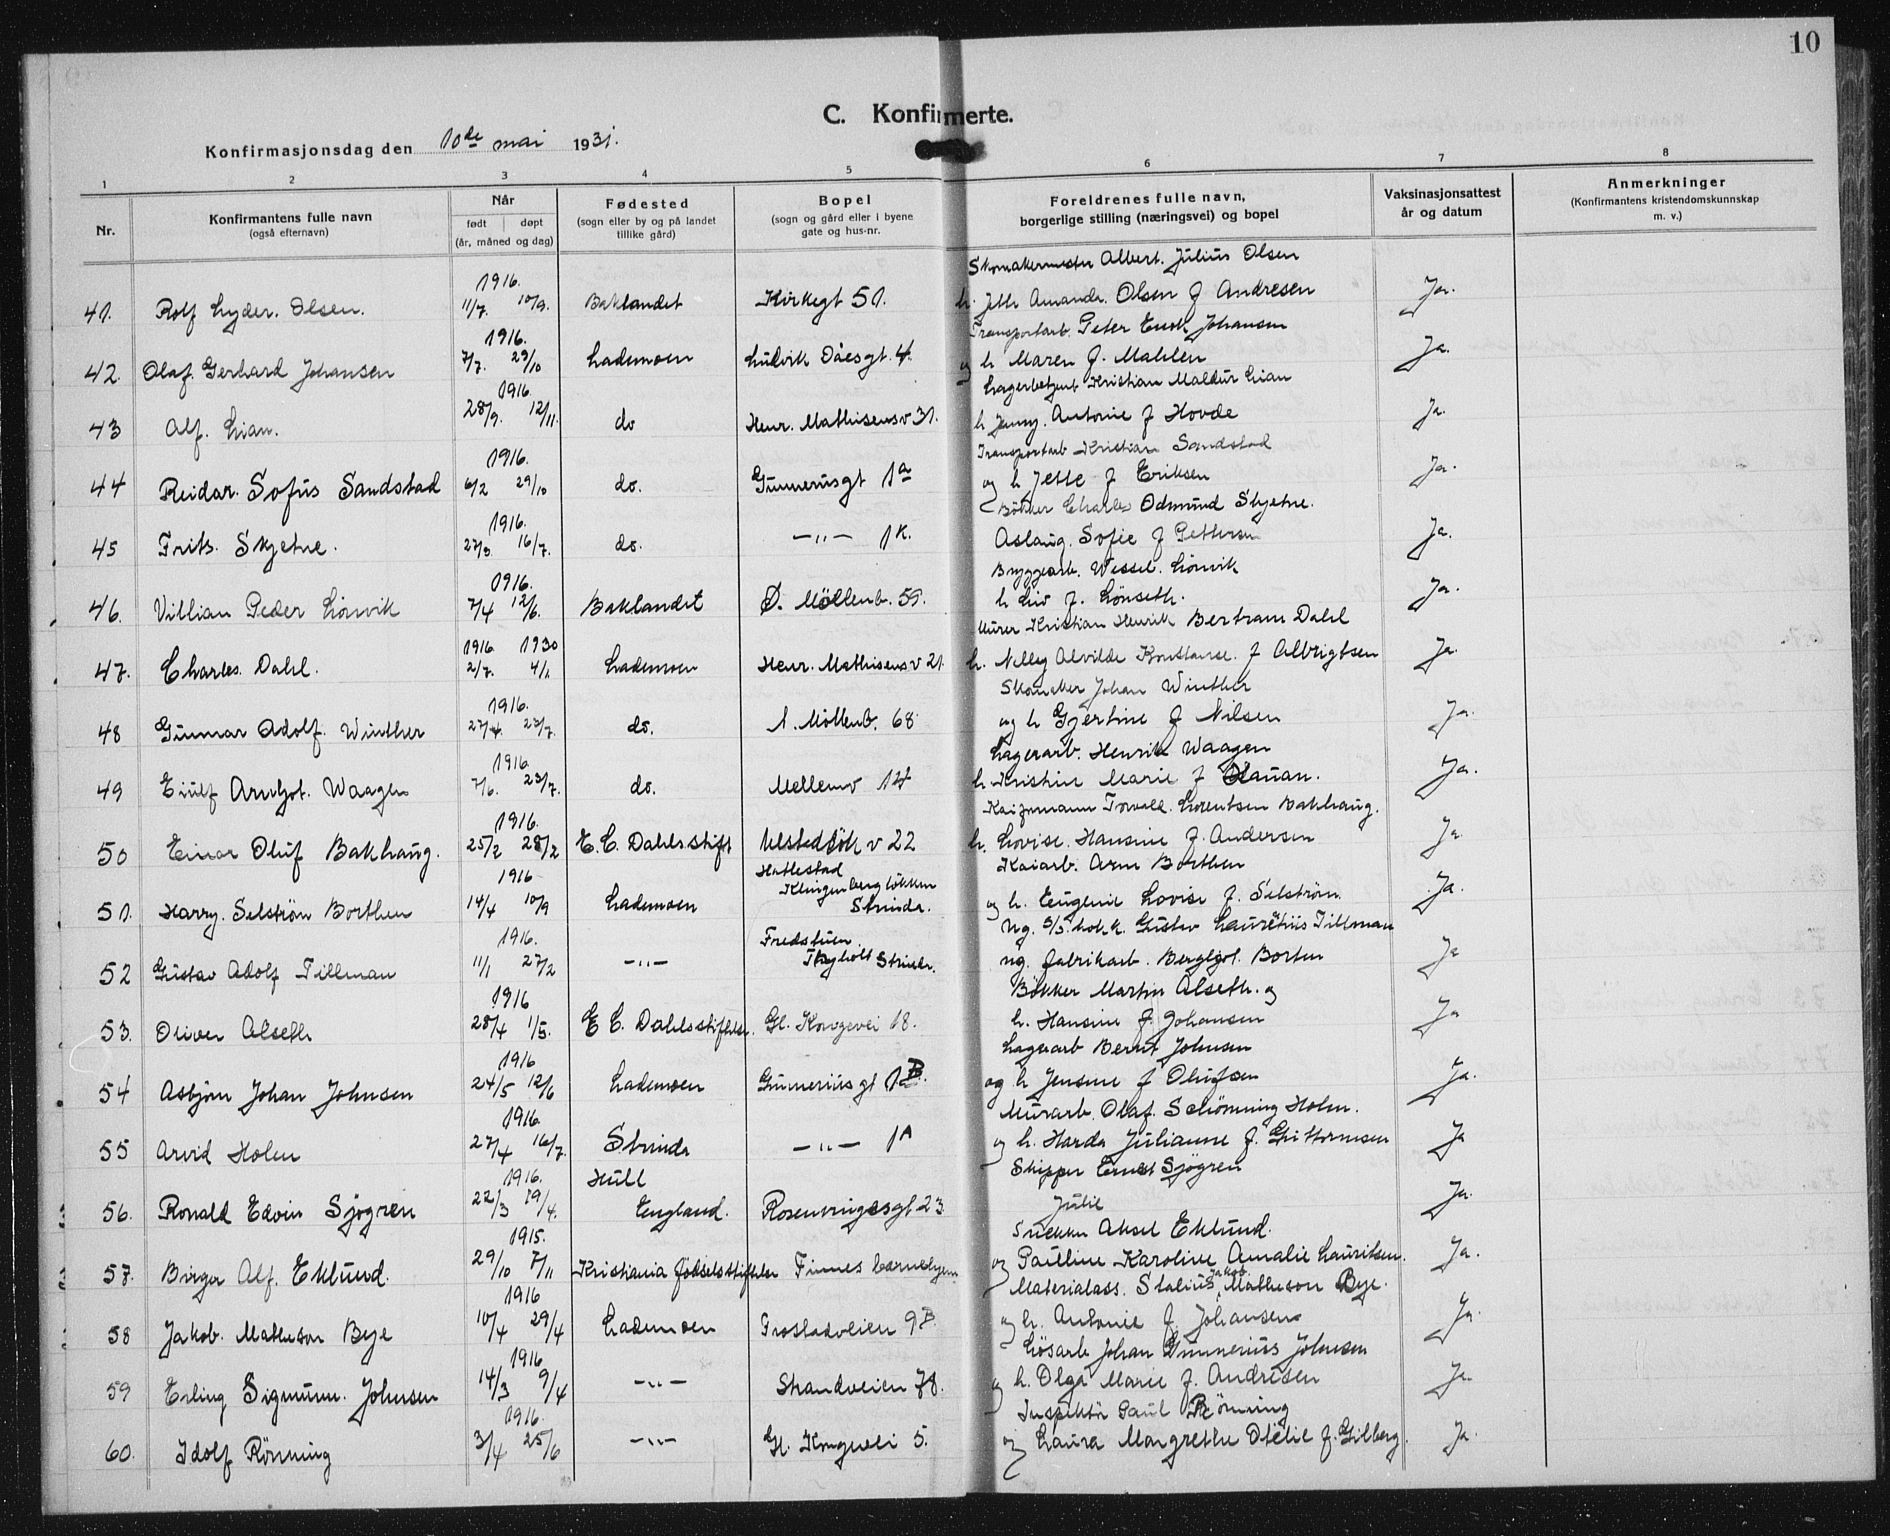 10
C. Konfirmerte.
Konfirmasjonsdag den 10de mai 1931.
1 2 3 4 5 6 7 8
Nr.
Konfirmantens fulle navn
(også efternavn)
Når
født døpt
(år, måned og dag)
Fødested
(sogn eller by og på landet
tillike gård)
Bopel
(sogn og gård eller i byene
gate og hus-nr.
Foreldrenes fulle navn,
borgerlige stilling (næringsvei) og bopel
Vaksinasjonsattest
år og datum
Anmerkninger
(Konfirmantens kristendomskunnskap
m. v.)
1916. Skomakermester Albert. Julius Olsen
41. Rolf Lyder. Olsen. 11/7. 10/9. Baklandet Kirkegt 51. h. Jette Amanda. Olsen f Andresen Ja.
1916. Transportarb. Peter Enok Johansen
42. Olaf. Gerhard Johansen 7/7. 29/10 Lademoen Ludvik Dåesgt. 4. og h. Maren f. Mahlen Ja.
1916. Lagerbetjent Kristian Maldur Lian
43 Alf. Lian. 28/9. 12/11. do Henr. Mathisensv 31. h Jenny. Antonie f Hovde Ja.
1916. Transportarb Kristian Sandstad
44 Reidar. Sofus Sandstad 6/2 29/10 do. Gunnerusgt 1a og h Jette f Eriksen Ja.
1916. Bøkker Charles Odmund Skjetne.
45 Frits. Skjetne. 27/3. 16/7. do. —"— 1K. Aslaug. Sofie f Pettersen Ja.
1916. Bryggearb. Wessel. Lönvik
46. Villian Peder Lönvik 7/4 12/6. Baklandet Ø. Möllenb. 59. h Liv f. Lönseth. Ja.
1916 1930 Murer Kristian Henrik Bertram Dahl
47. Charles. Dahl. 2/7. 4/1 Lademoen Henr. Mathisens v 21. h. Nelly Alvilde Konstanse. f Albrigtsen Ja.
1916. Skomaker Johan Winther
48 Gunnar Adolf. Winther 27/4. 23/7. do. N. Möllenb. 68 og h Gjertine f Nilsen Ja.
1916 Lagerarb. Henrik Waagen
49 Eiulf Arnljot. Waagen 7/6. 23/7. do. Mellemv 14 h Kristine Marie f Hauan. Ja.
1916. Torvall. Lorentsen Bakhaug.
50 Einar Oluf Bakhaug. 25/2 28/2 E. C. Dahls stift v 22 h. Lovise. Hansine f. Andersen Ja
1916 Kaiarb. Arne Borthen
51. Harry. Selström Borthen 14/4 10/9 Lademoen Hattestad Klingenberg lökken Strinda. og h. Eugenie Lovise f. Selström. Ja.
1916. Gustav Laurentius Tillman
52 Gustav Adolf Tillman 11/1 27/2 —"— Fredstuen. Tyholt Strinda. ug. fabrikarb. Bergljot. Borten Ja
1916 Bökker Martin Alseth. og
53. Oliver Alseth 28/4 1/5. E C. Dahls stiftelse. Gl. Kongevei 18. h. Hansine f Johansen Ja
1916 Lagerarb Bernt Johnsen
54 Asbjörn Johan Johnsen 24/5 12/6 Lademoen Gunnerius gt 1B. og h Jensine f Olufsen Ja.
1916 Murarb. Olaf. Schönning Holen.
55 Arvid Holen 27/4 16/7. Strinda —"— 1A og h. Harda Julianne f. Guttormsen Ja
1916. Hull Skipper Ernst Sjögren
56. Ronald Edvin Sjögren 22/3 19/4. England. Rosenvingesgt 23 Julie Ja.
1915. Snekker Aksel Eklund.
57. Birger Alf. Eklund. 29/10 7/11 Kristiania fødselsstiftelse Finnes barnehjem og Pauline Karoline Amalie Lauritsen. Ja.
1916 Materialass. Stalius Jakob Matheson Bye.
58 Jakob. Matheson Bye 10/4 29/4 Lademoen Frostadveien 9B. og h. Antonie f. Johansen Ja.
1916 Lösarb Johan Gunnerius Johnsen
59 Erling Sigmunn. Johnsen 14/3 9/4 —"— Strandveien 78. og h. Olga Marie f. Andresen Ja.
1916. Inspektör Paul Rönning
60. Idolf Rönning 3/4 25/6 —"— Gl. Kongevei 5. og Laura Margrethe Otelie f. Gilberg. Ja.